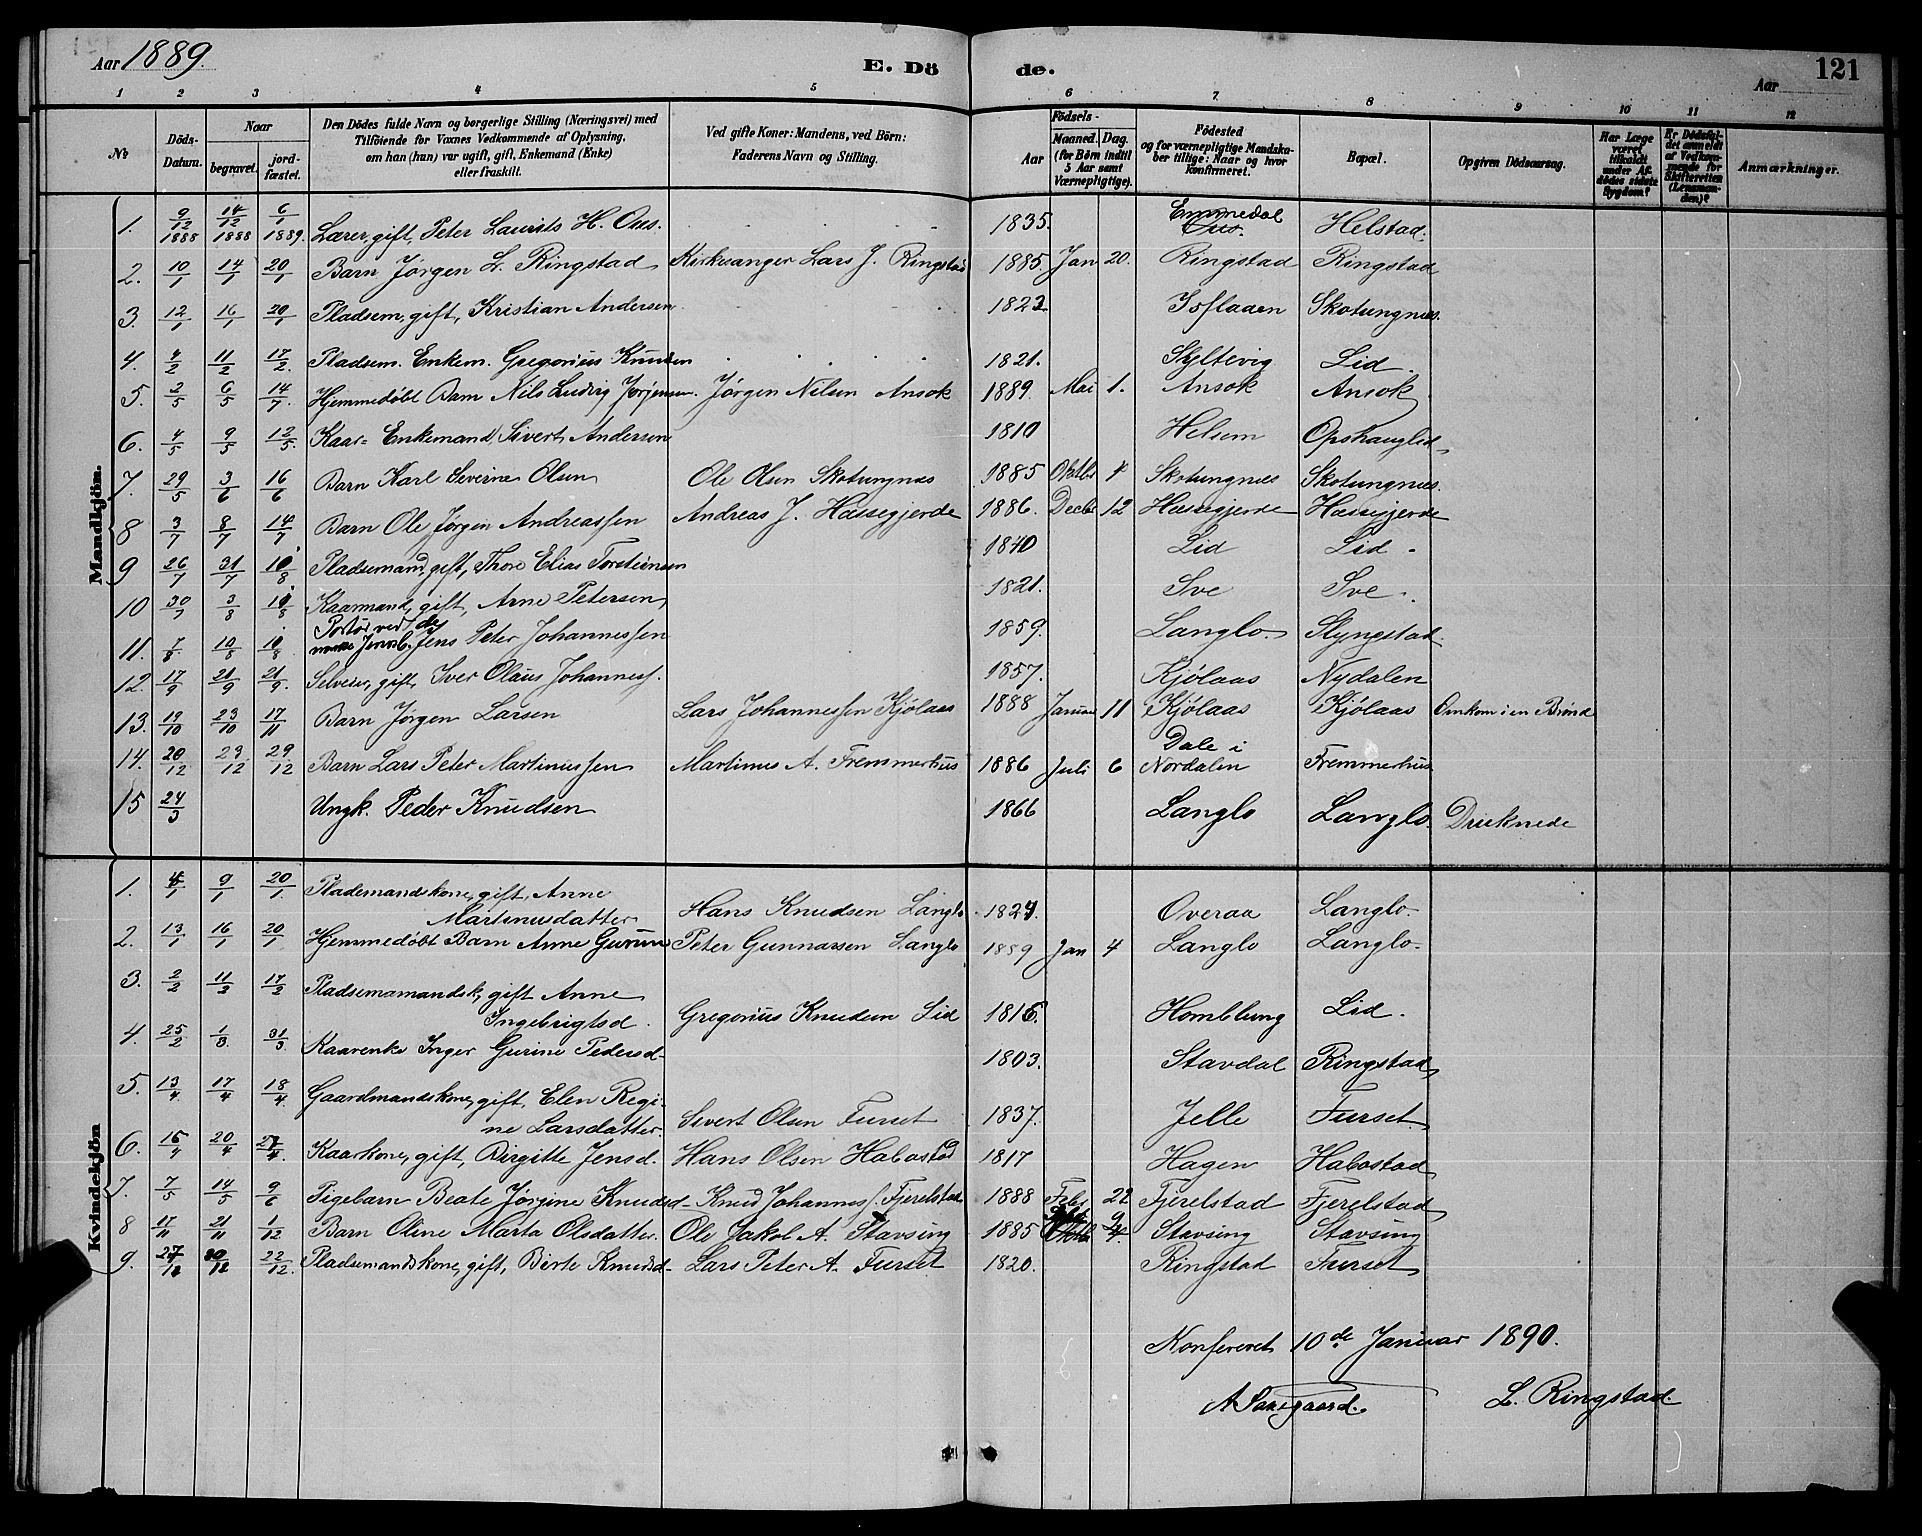 Aar 1889. E. Dö de. Aar 121
1 2 3 4 5 6 7 8 9 10 11 12
No. Döds-Datum. Naar begravet. jordfæstet. Den Dödes fulde Navn og borgerlige Stilling (Næringsvei) med Tilföiende for Voxnes Vedkommende af Oplysning, om han (hun) var ugift, gift, Enkemand (Enke) eller fraskilt. Ved gifte Koner: Mandens, ved Börn: Faderens Navn og Stilling. Födsels- Aar Maaned. Dag. (for Börn indtil 5 Aar samt Værnepligtige). Födested og for værnepligtige Mandskaber tillige: Naar og hvor konfirmeret. Bopæl. Opgiven Dödsaarsag. Har Læge været tilkaldt under Afdödes sidste Sygdom? Er Dödsfaldet anmeldt af Vedkommende for Skifteretten (Lensmanden)? Anmærkninger.
Mandkjön.
1. 9/12 1888 14/12 1888 6/1 1889. Lærer, gift, Peter Laurits H. Ous. 1835. Emmedal Ous. Helstad.
2. 10/1 14/1 20/1 Barn Jørgen L. Ringstad Kirkesanger Lars J. Ringstad 1885. Jan 20. Ringstad Ringstad
3. 12/1 16/1 20/1 Pladsem, gift, Kristian Andersen 1823 Isflaaen Skotungnæs.
4. 4/2 11/2 17/2. Pladsem. Enkem. Gregorius Knudsen 1821. Syltevig Lid.
5. 2/5 6/5 14/7. Hjemmedøbt Barn Nils Ludvig Jørgensen. Jørgen Nilsen Ansok 1889. Mai 1. Ansok Ansok
6. 4/5 9/5 12/5. Kaar- Enkemand, Sivert Andersen 1810 Helsem Opshauglid
7. 29/5 3/6 16/6 Barn Karl Severin Olsen Ole Olsen Skotungnæs 1885 Oktb 4 Skotungnæs Skotungnæs.
8 3/7 8/7 14/7 Barn Ole Jørgen Andreassen Andreas J. Hassegjerde 1886. Decbr 12 Hassegjerde Hassegjerde
9 26/7 31/7 10/8 Pladsemand, gift, Thore Elias Torsteinsen 1840 Lid Lid.
10 30/7 3/8 10/8 Kaarmand, gift, Arne Petersen, 1821. Sve Sve.
11. 7/8 10/8 10/8 Portør ved de Jernb. Jens Peter Johannessen 1859. Langlo. Slyngstad.
12. 17/9 21/9 21/9. Selveier, gift, Iver Olaus Johanness. 1857. Kjølaas Nydalen
13. 19/10 23/10 17/11 Barn Jørgen Larsen Lars Johannessen Kjølaas 1888 Januar 11 Kjølaas Kjølaas Omkom i en Brønd
14. 20/12 23/12 29/12 Barn Lars Peter Martinussen Martinus A. Fremmerhus 1886 Juli 6 Dale i Nordalen Fremmerhus
15 24/3 Ungk. Peder Knudsen 1866 Langlo Langlo. Druknede
Kvindekjön
1. 4/1 9/1 20/1. Plademandskone, gift, Anne
Martinusdatter. Hans Knudsen Langlo 1824. Overaa Langlo.
2. 13/1 16/1 20/1 Hjemmedøbt Barn Anne Gurine Peter Gunnarsen Langlo 1889 Jan 4 Langlo Langlo.
3. 2/2 11/2 17/2 Pladsemamandsk, gift Anne
Ingebrigtsd. Gregorius Knudsen Lid 1816. Homblung Lid.
4. 25/2 1/3 31/3. Kaarenke Inger Gurine Pedersd. 1803. Stavdal Ringstad
5. 13/4. 17/4 18/4. Gaardmandskone, gift, Elen Regi-
ne Larsdatter. Sivert Olsen Furset 1837. Jelle Furset
6. 15/4 20/4 27/4. Kaarkone, gift, Birgitte Jensd. Hans Olsen Habostad 1817 Hagen Habostad
7. 7/5 14/5 9/6 Pigebarn Beate Jørgine Knudsd. Knud Johannes. Fjerelstad 1888 Febr 22 Fjerelstad Fjerelstad
8 17/11 21/11 1/12 Barn Oline Marta Olsdatter. Ole Jakob A. Stavseng 1885 9 Stavseng Stavseng
9. 27/12 30/12 22/12. Pladsemandskone, gift, Birte Knudsd. Lars Peter A. Furset 1820. Ringstad Furset
Konfereret 10de Januar 1890.
A Saxegaard. L. Ringstad.